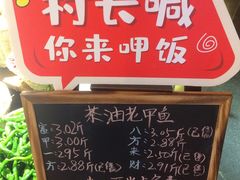 村长喊
你来呷饭
茶油老甲鱼
富:3.02斤
八:3.05斤(已售)
甲:3.00斤
方:2.88斤
一:2.95斤
来:2.50斤(已售)
方:2.88斤(已售)
财:2.91斤(已售)